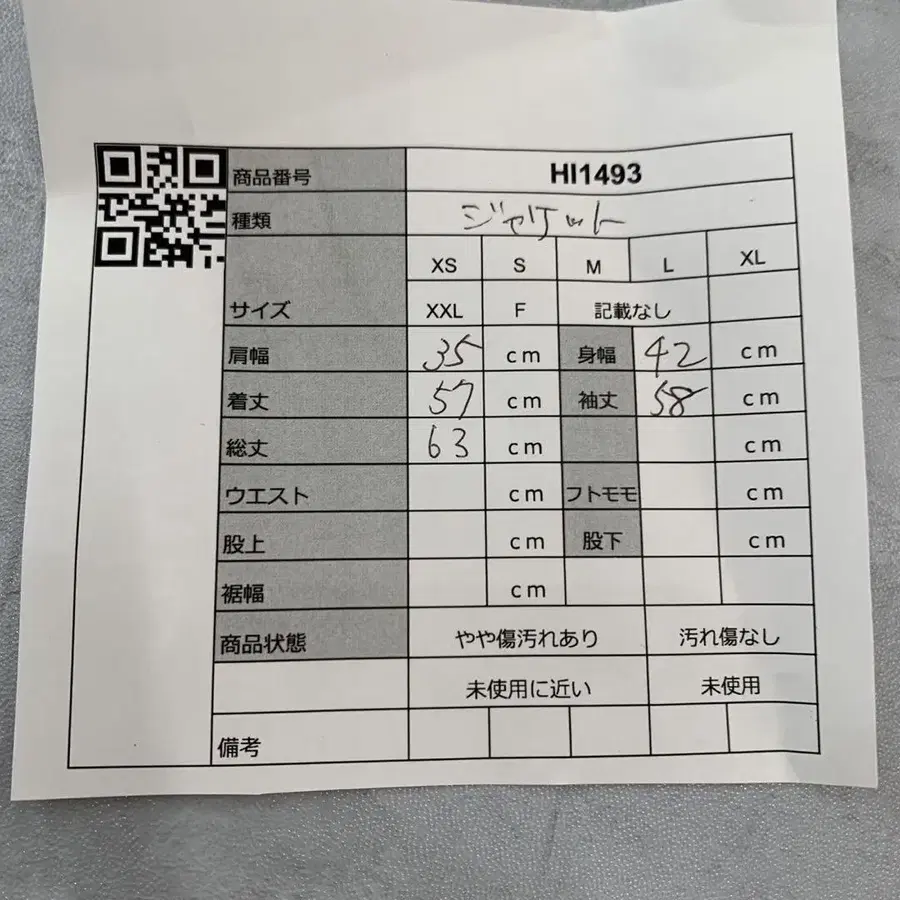 商品番号 HI1493
種類 ジャケット
XS S M L XL
サイズ XXL F 記載なし
肩幅 35 cm 身幅 42 cm
着丈 57 cm 袖丈 58 cm
総丈 63 cm cm
ウエスト cm フトモモ cm
股上 cm 股下 cm
裾幅 cm
商品状態 やや傷汚れあり 汚れ傷なし
未使用に近い 未使用
備考